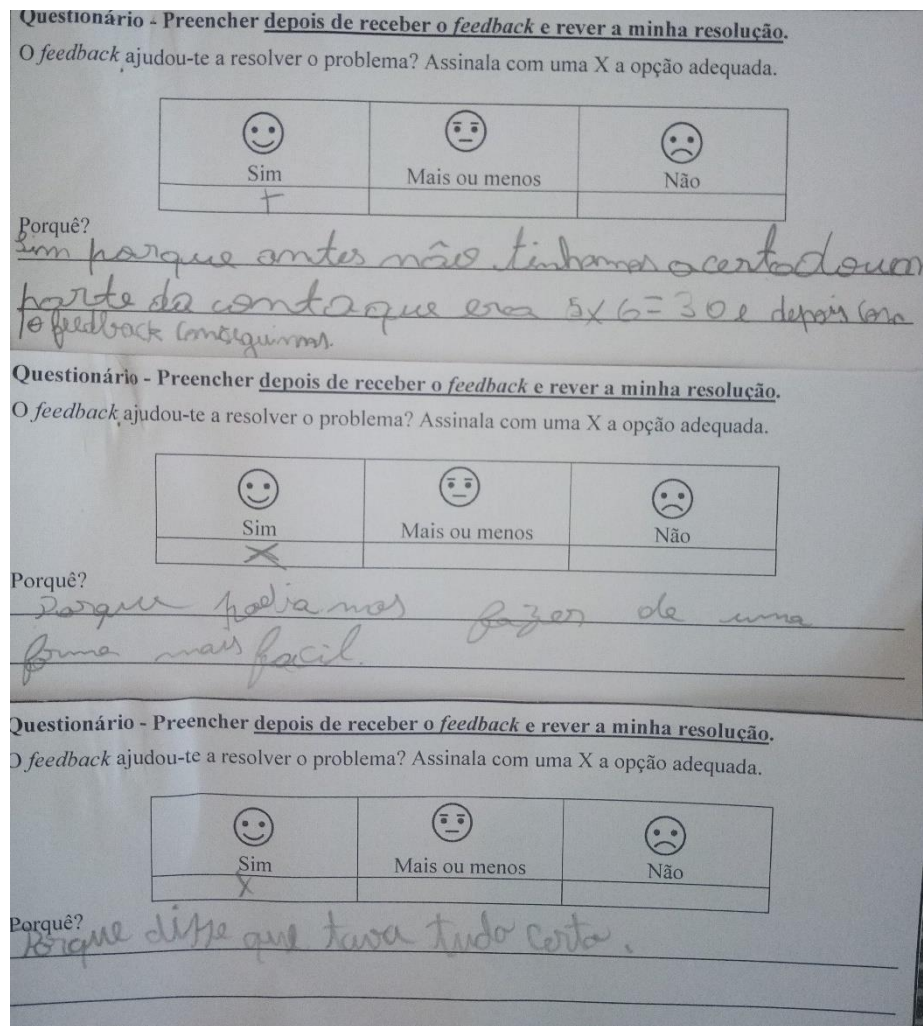 Questionário - Preencher depois de receber o feedback e rever a minha resolução.
O feedback ajudou-te a resolver o problema? Assinala com uma X a opção adequada.
Sim Mais ou menos Não
Porquê?
Sim porque antes não tinhamos acertado um
parte da conta que era 5x6=30 e depois com
o feedback conseguimos.
Questionário - Preencher depois de receber o feedback e rever a minha resolução.
O feedback ajudou-te a resolver o problema? Assinala com uma X a opção adequada.
Sim Mais ou menos Não
X
Porquê?
Porque podiamos fazer de uma
forma mais facil.
Questionário - Preencher depois de receber o feedback e rever a minha resolução.
O feedback ajudou-te a resolver o problema? Assinala com uma X a opção adequada.
Sim Mais ou menos Não
X
Porquê?
Porque disse que tava tudo certo.